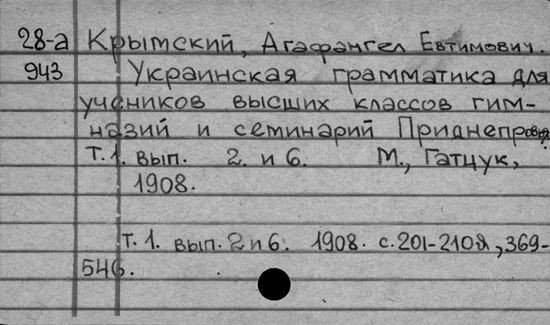 28-а Крымский, Агафангел Евтимович.
943 Украинская грамматика для
учеников высших классов гим-
назий и семинарий Приднепровья.
Т.1. вып. 2. и 6. М., Гатцук,
1908.
Т. 1. вып. 2 и 6. 1908. с. 201-210, 369-
546.